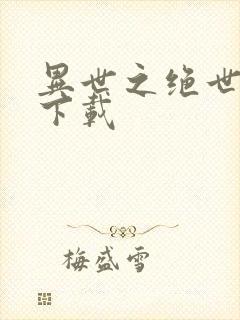 異世之绝世
下載
梅盛雪